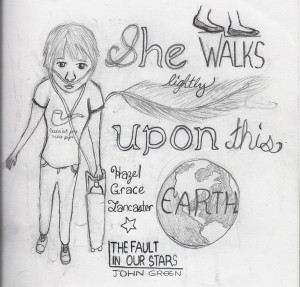 She WALKS
lightly
upon this
Hazel
Grace
Lancaster
EARTH
THE FAULT
IN OUR STARS
JOHN GREEN